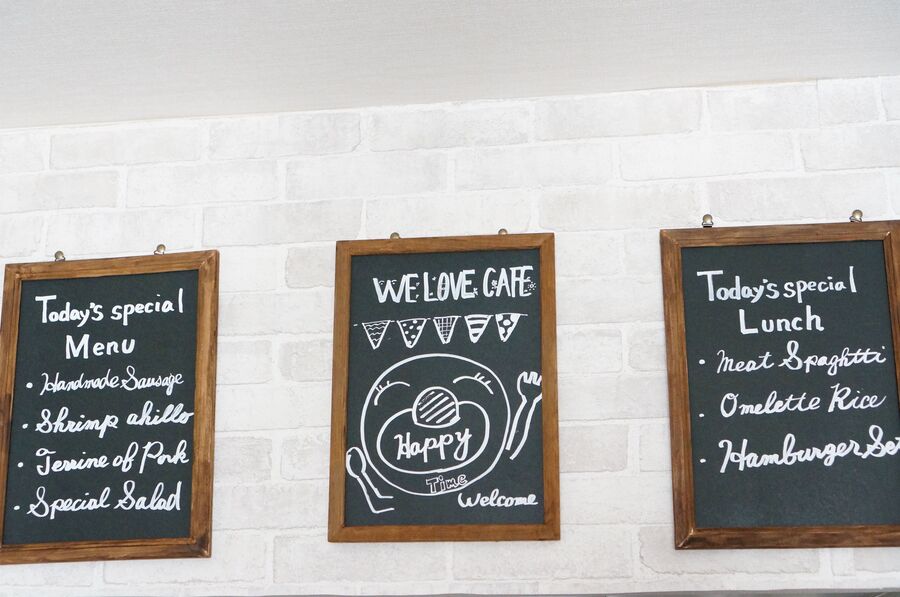 Today's special
Menu
• Handmade Sausage
• Shrimp ahillo
• Terrine of Pork
• Special Salad
WE LOVE CAFE
Happy
Time
Welcome
Today's special
Lunch
• Meat Spaghtti
• Omelette Rice
• Hamburger Set